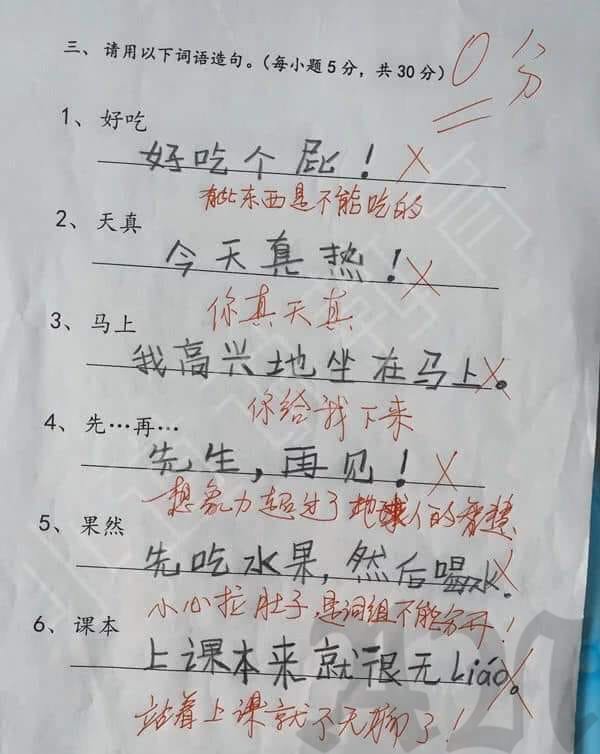 三、请用以下词语造句。(每小题5分,共30分)
0分
1、好吃
好吃个屁!
有些东西是不能吃的
2、天真
今天真热!
你真天真
3、马上
我高兴地坐在马上。
你给我下来
4、先…再…
先生,再见!
想象力超过了地球人的智慧
5、果然
先吃水果,然后喝水。
小心拉肚子,是词组不能分开!
6、课本
上课本来就很无Liáo。
站着上课就不无聊了!